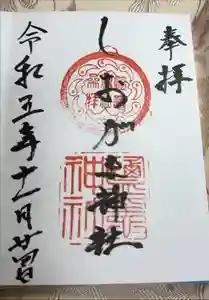 奉拝
しおがま神社
神社
令和五年十一月廿四日